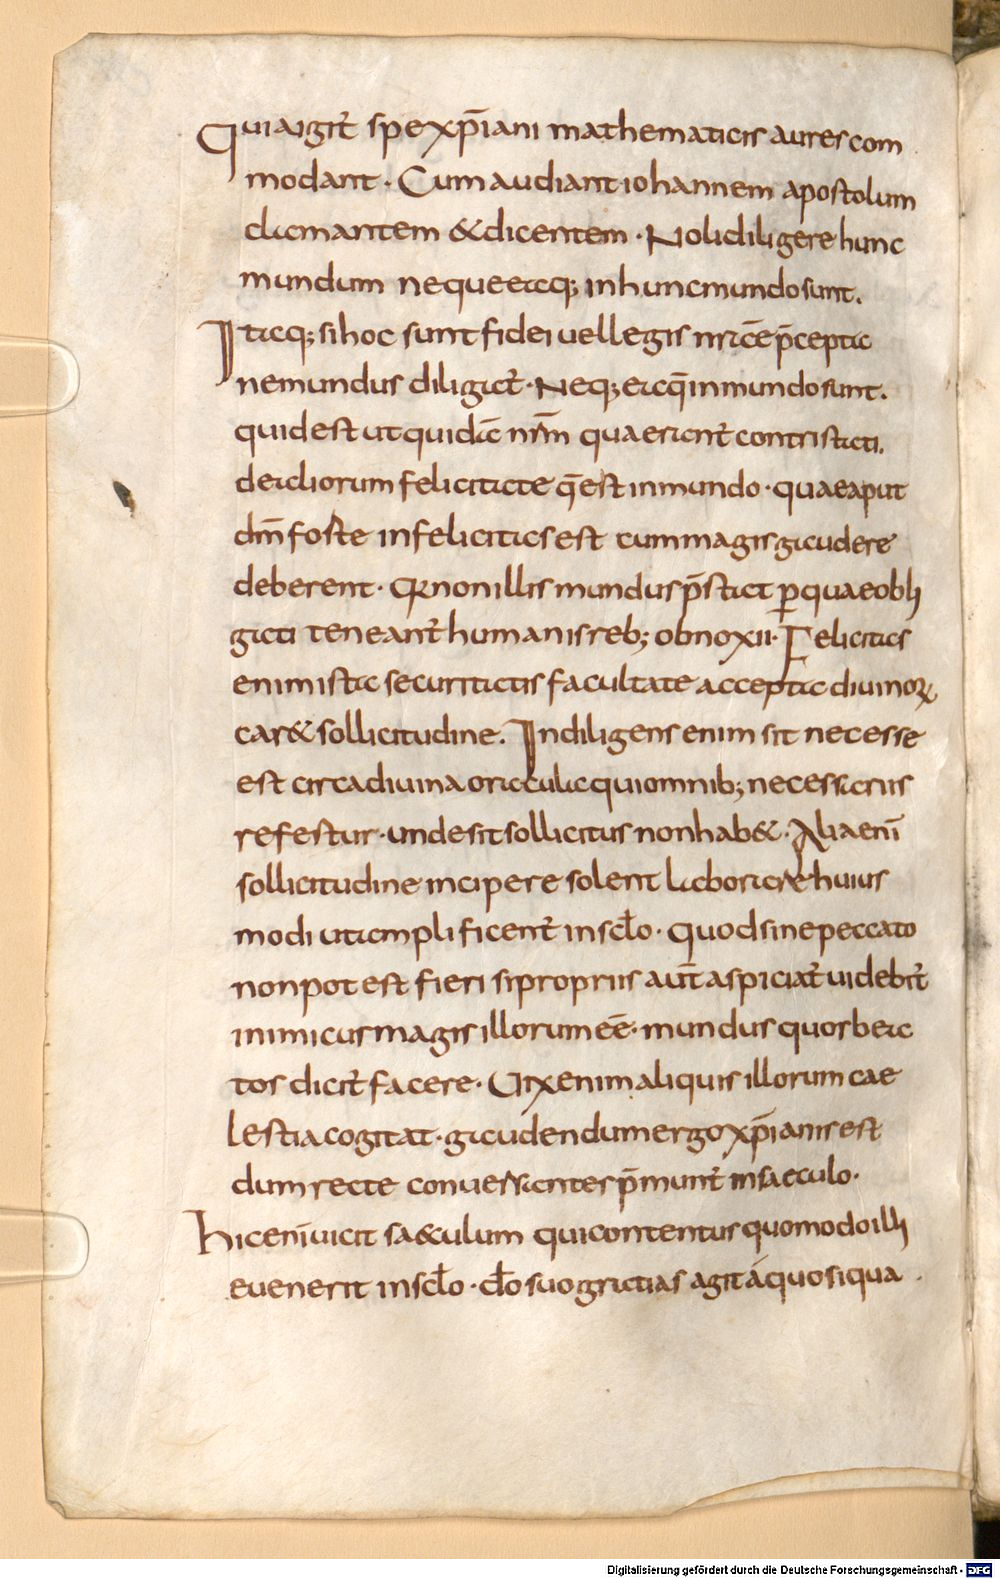 Qua igit̄ spe xp̄iani mathematicis aures com
modant · Cum audiant iohannem apostolum
clamantem & dicentem · Nolidiligere hunc
mundum neque eaq; inhunc mundo sunt.
Itaq; si hoc sunt fidei uel legis nr̄ae p̄cepta
ne mundus diligat̄ · Neq; ea q̄ in mundo sunt.
quid est ut quidā nr̄m quaerant̄ contristati.
de aliorum felicitate q̄ est in mundo · quae aput
dm̄ foste infelicitas est cum magis gaudere
deberent · Qr non illis mundus p̄stat p̱ quae obli
gati teneant̄ humanis reb; obnoxii · Felicitas
enim ista securitatis facultate accepta diuinoꝝ
car& sollicitudine. Indiligens enim sit necesse
est circa diuina oracula qui omnib; necessariis
refestur · unde sit sollicitus non hab& · Alia eni̅
sollicitudine incipere solent laborare huius
modi ut amplificent̄ in scło · quod sine peccato
non potest fieri si propriis aut̄ aspiciat̄ uidebit̄
inimicus magis illorum eē · mundus quos bea
tos dicit̄ facere · Uix enim aliquis illorum cae
lestia cogitat · gaudendum ergo xp̄ianis est
dum recte conuersantes p̄munt̄ in saeculo ·
hic eni̅ uicit sa&culum qui contentus quomodo illi
euenerit in scło · cłosuo gratias agit á quo siqua ·
Digitalisierung gefördert durch die Deutsche Forschungsgemeinschaft - DFG